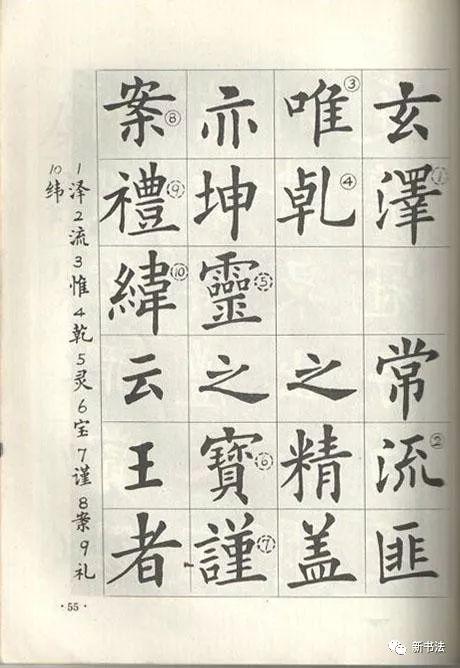 玄澤①常流②匪
唯③乹④之精盖
亦坤靈⑤之寶⑥謹⑦
案⑧禮⑨緯⑩云王者
1泽2流3惟4乾5灵6宝7谨8案9礼
10纬
·55·
新书法